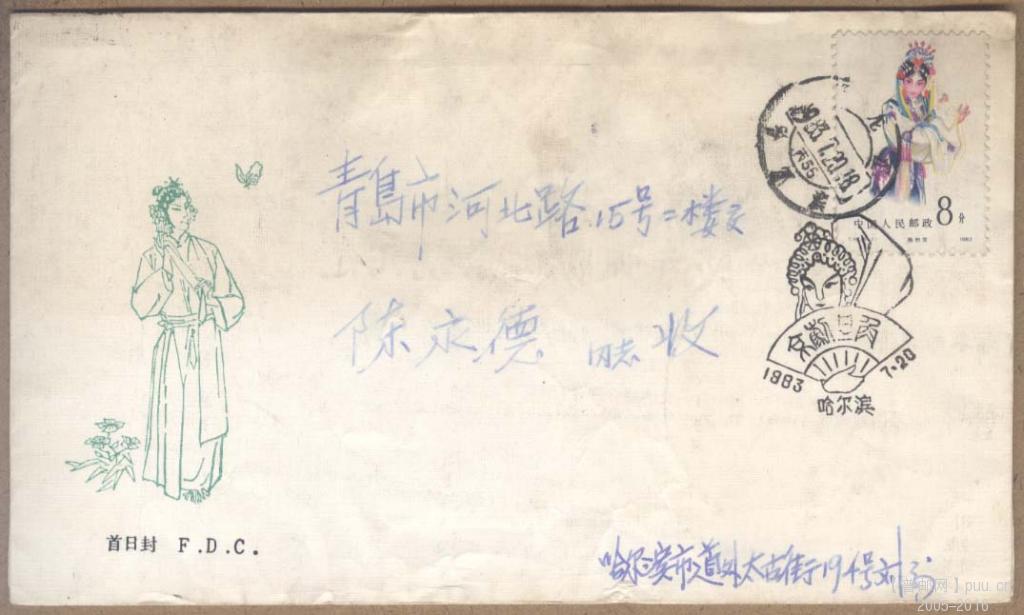 8分
中国人民邮政
1983.7.20.18
(丙55)
青島市河北路15号二楼
陈永德 同志 收
京劇旦角
1983
7·20
哈尔滨
首日封 F.D.C.
哈尔滨市道外太古街194号刘
【普邮网】puu.cn
2005-2016